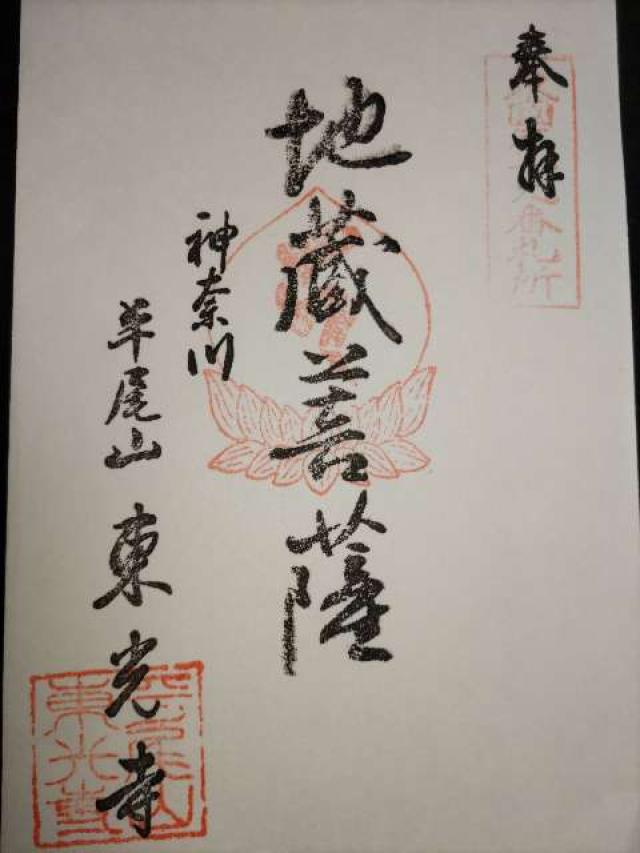 奉拝
地蔵菩薩
神奈川
羊尾山 東光寺
番札所
東光寺